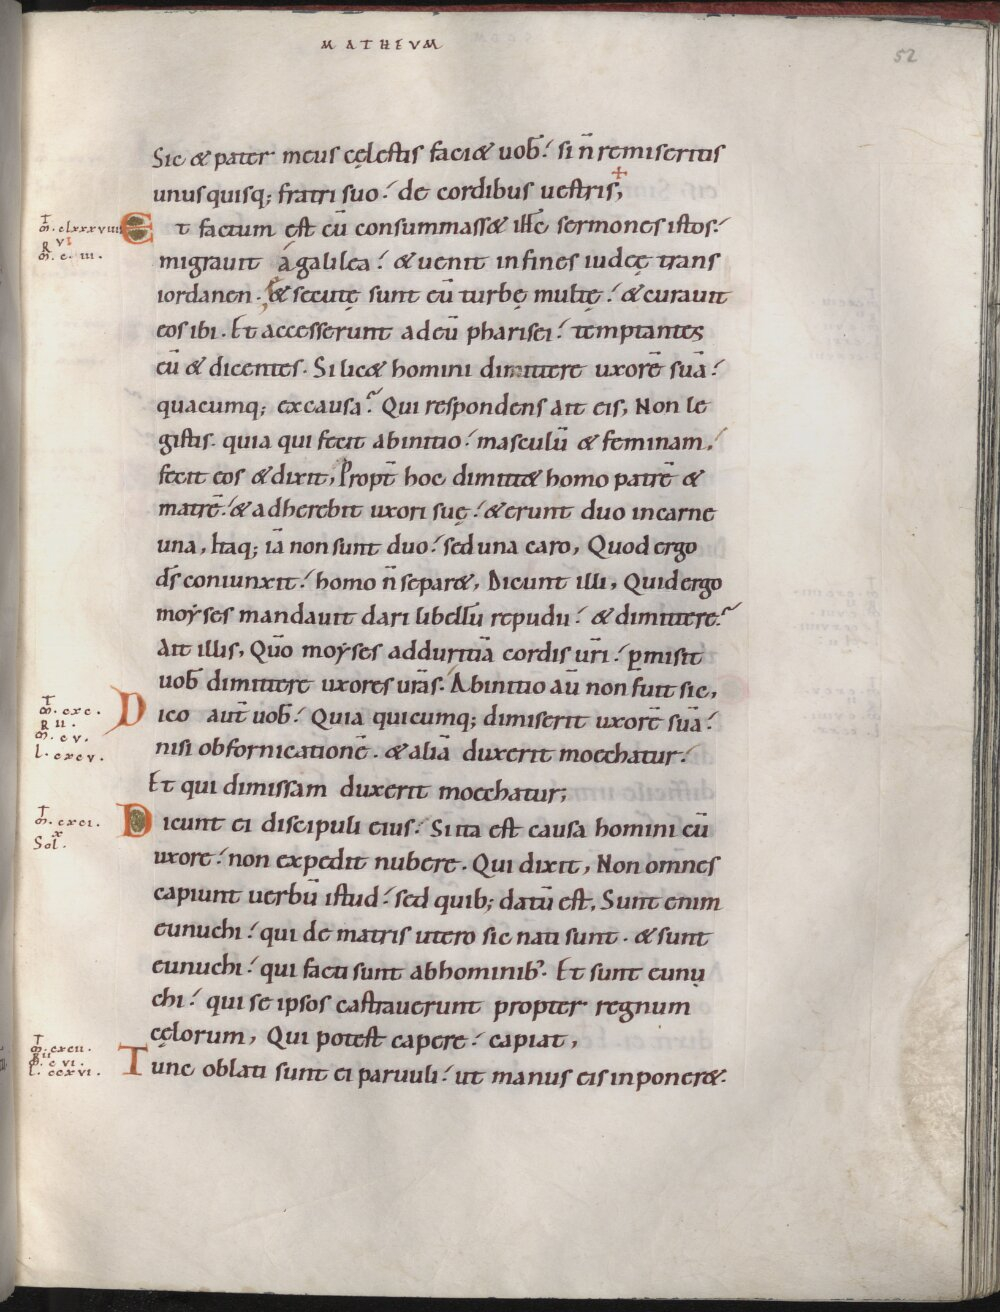 MATHEVM
52
Sic & pater meus cęlestis faci& uob̄. si n̄ remiseritis
unusquisq; fratri suo. de cordibus uestris;
Et factum est cū consummass& ihc̄ sermones istos.
migrauit a galilea. & uenit in fines iudeę trans
iordanen. & secutę sunt eū turbę multę. & curauit
eos ibi. Et accesserunt ad eū pharisei. temptantes
eū & dicentes. Si lic& homini dimittere uxorē suā.
quacumq; ex causa? Qui respondens ait eis, Non le
gistis. quia qui fecit ab initio. masculū & feminam.
fecit eos & dixit, Propt̄ hoc dimitt& homo patrē &
matrē. & adherebit uxori suę. & erunt duo in carne
una, Itaq; iā non sunt duo. sed una caro, Quod ergo
dr̄s coniunxit. homo n̄ separ&, Dicunt illi, Quid ergo
moẏses mandauit dari libellū repudii. & dimittere?
Ait illis, Qūo moẏses ad duritiā cordis ur̄i. ꝑmisit
uob̄ dimittere uxores ur̄as. Ab initio aū non fuit sic,
Dico aut̄ uob̄. Quia quicumq; dimiserit uxorē suā.
nisi ob fornicationē. & aliā duxerit moechatur.
Et qui dimissam duxerit moechatur;
Dicunt ei discipuli eius. Si ita est causa homini cū
uxore. non expedit nubere. Qui dixit, Non omnes
capiunt uerbū istud. sed quib; datū est, Sunt enim
eunuchi. qui de matris utero sic nati sunt. & sunt
eunuchi. qui facti sunt ab hominib'. Et sunt eunu
chi. qui se ipsos castrauerunt propter regnum
cęlorum, Qui potest capere. capiat,
Tunc oblati sunt ei paruuli. ut manus eis inponer&.
m̄. clxxxviiii
VI
R
m̄. c. iii.
m̄. cxc.
R ii.
m̄. cv.
l. cxcv.
m̄. cxci.
x
Sol.
m̄. cxcii.
R ii
m̄. cvi.
l. ccxvi.